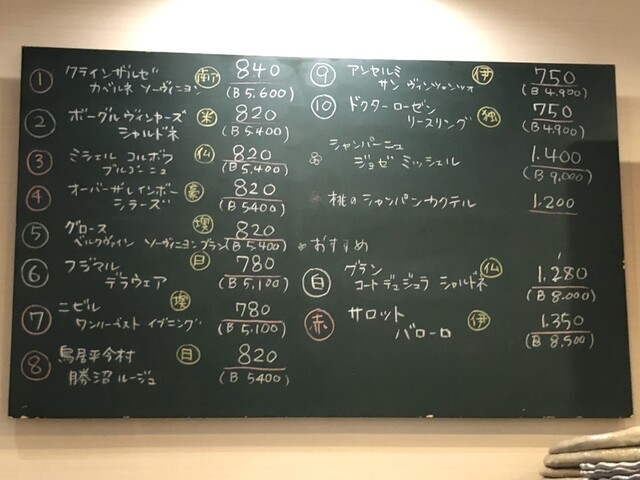 ① クラインザルゼ 南ア 840
カベルネ ソーヴィニヨン (B 5.600)
② ボーグルヴィンヤーズ 米 820
シャルドネ (B 5400)
③ ミシェル コルボウ 仏 820
ブルゴーニュ (B 5,400)
④ オーバーザレインボー 豪 820
シラーズ (B 5400)
⑤ グロース 墺 820
ベルクヴァイン ソーヴィニヨンブラン (B 5.400)
⑥ フジマル 日 780
デラウェア (B 5,100)
⑦ ニゼル 墺 780
ワンバーベスト イブニング (B 5,100)
⑧ 鳥居平今村 日 820
勝沼ルージュ (B 5400)
⑨ アンセルミ 伊 750
サン ヴィンツェンツォ (B 4.900)
⑩ ドクターローゼン 独 750
リースリング (B 4,900)
シャンパーニュ 1.400
ジョゼ ミッシェル (B 9,000)
桃のシャンパンカクテル 1.200
おすすめ
白 グラン 仏 1,280
コートデュジュラ シャルドネ (B 8.000)
赤 サロット 伊 1.350
バローロ (B 8,500)